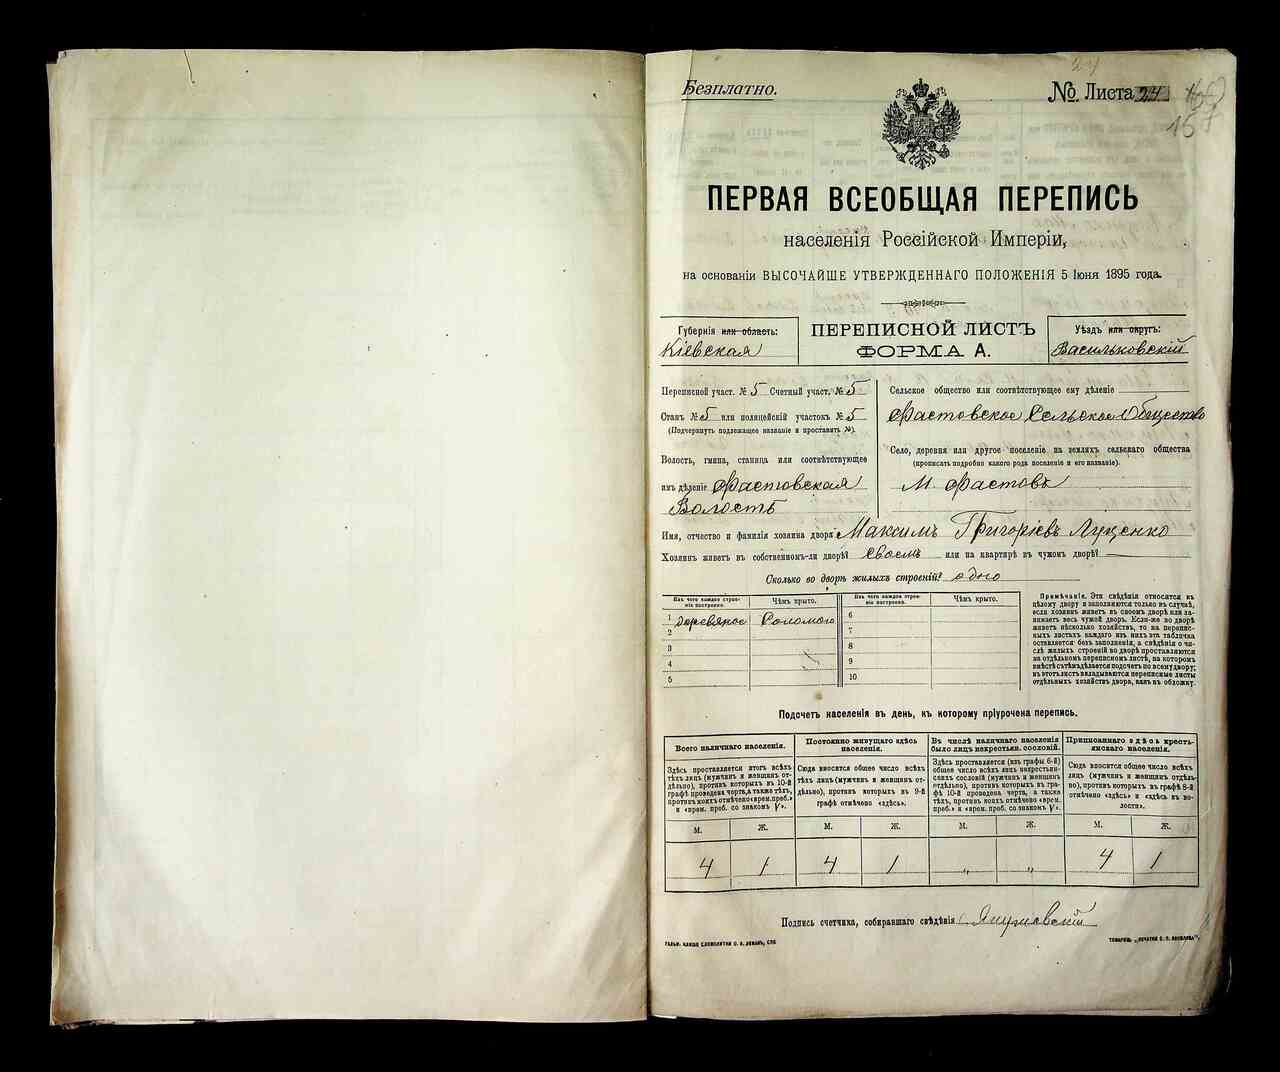 24
Безплатно.
№ Листа 24
157
ПЕРВАЯ ВСЕОБЩАЯ ПЕРЕПИСЬ
населенія Россійской Имперіи,
на основаніи ВЫСОЧАЙШЕ УТВЕРЖДЕННАГО ПОЛОЖЕНІЯ 5 Іюня 1895 года.
Губернія или область:
Кіевская
ПЕРЕПИСНОЙ ЛИСТЪ
ФОРМА А.
Уѣздъ или округъ:
Васильковскій
Переписной участ. № 5 Счетный участ. № 5
Станъ № 5 или полицейскій участокъ № 5
(Подчеркнуть подлежащее названіе и проставить №).
Волость, гмина, станица или соотвѣтствующее
имъ дѣленіе Фастовская
Волость
Сельское общество или соотвѣтствующее ему дѣленіе
Фастовское Сельское Общество
Село, деревня или другое поселеніе на земляхъ сельскаго общества
(прописать подробно какого рода поселеніе и его названіе).
М. Фастовъ
Имя, отчество и фамилія хозяина двора Максимъ Григоріевъ Луценко
Хозяинъ живетъ въ собственномъ-ли дворѣ? своемъ или на квартирѣ въ чужомъ дворѣ?
Сколько во дворѣ жилыхъ строеній? одно
Изъ чего каждое строеніе построено.
Чѣмъ крыто.
Изъ чего каждое строеніе построено.
Чѣмъ крыто.
1 деревяное Соломою
2
3
4
5
6
7
8
9
10
Примѣчаніе. Эти свѣдѣнія относятся къ
цѣлому двору и заполняются только въ случаѣ,
если хозяинъ живетъ въ своемъ дворѣ или занимаетъ весь чужой дворъ. Если-же во дворѣ
живетъ нѣсколько хозяйствъ, то на переписныхъ листахъ каждаго изъ нихъ эта табличка
оставляется безъ заполненія, а свѣдѣнія о числѣ жилыхъ строеній во дворѣ проставляются
на отдѣльномъ переписномъ листѣ, на которомъ
вмѣстѣ съ тѣмъ дѣлается подсчетъ по всему двору;
въ этотъ листъ вкладываются переписные листы
отдѣльныхъ хозяйствъ двора, какъ въ обложку.
Подсчетъ населенія въ день, къ которому пріурочена перепись.
Всего наличнаго населенія.
Здѣсь проставляется итогъ всѣхъ
тѣхъ лицъ (мужчинъ и женщинъ отдѣльно), противъ которыхъ въ 10-й
графѣ проведена черта, а также тѣхъ,
противъ коихъ отмѣчено «врем. преб.»
и «врем. проб. со знакомъ V».
Постоянно живущаго здѣсь
населенія.
Сюда вносится общее число всѣхъ
тѣхъ лицъ (мужчинъ и женщинъ отдѣльно), противъ которыхъ въ 9-й
графѣ отмѣчено «здѣсь».
Въ числѣ наличнаго населенія
было лицъ некрестьян. сословій.
Здѣсь проставляется (изъ графы 6-й)
общее число всѣхъ лицъ некрестьянскихъ сословій (мужчинъ и женщинъ
отдѣльно), противъ которыхъ въ графѣ 10-й проведена черта, а также
тѣхъ, противъ коихъ отмѣчено «врем.
преб.» и «врем. преб. со знакомъ V».
Приписаннаго здѣсь крестьянскаго населенія.
Сюда вносится общее число всѣхъ
лицъ (мужчинъ и женщинъ отдѣльно), противъ которыхъ въ графѣ 8-й
отмѣчено «здѣсь» и «здѣсь въ волости».
М. Ж. М. Ж. М. Ж. М. Ж.
4 1 4 1 „ „ 4 1
Подпись счетчика, собиравшаго свѣдѣнія